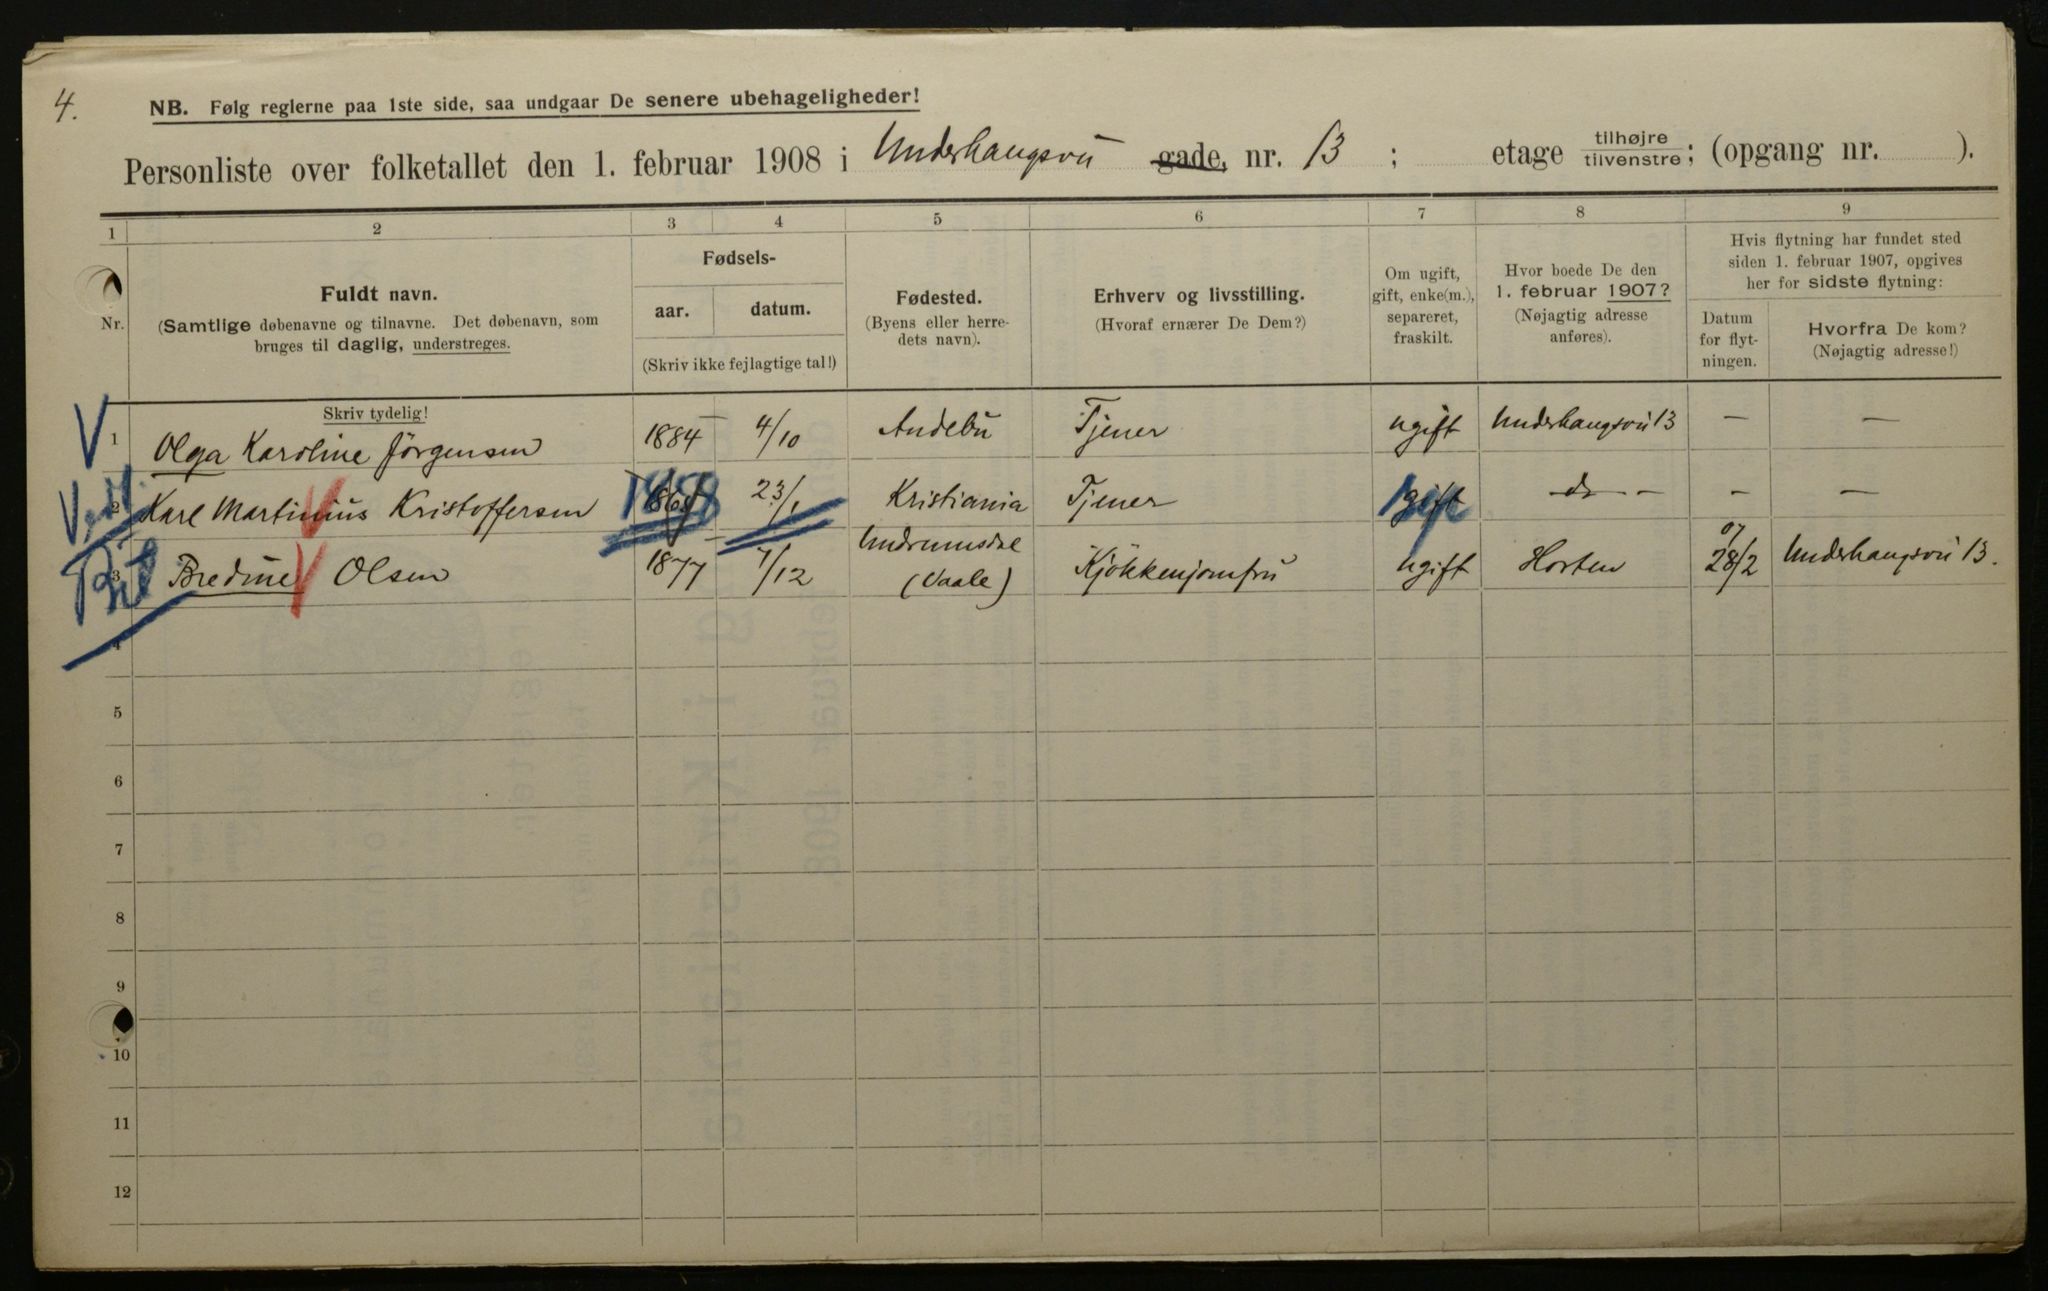 4.
NB. Følg reglerne paa 1ste side, saa undgaar De senere ubehageligheder!
Personliste over folketallet den 1. februar 1908 i Underhaugsvei gade, nr. 13 ; etage tilhøjre tilvenstre; (opgang nr. ).
1 2 3 4 5 6 7 8 9
Nr.
Fuldt navn.
(Samtlige døbenavne og tilnavne. Det døbenavn, som
bruges til daglig, understreges.
Skriv tydelig!
Fødsels-
aar. datum.
(Skriv ikke fejlagtige tal!)
Fødested.
(Byens eller herre-
dets navn).
Erhverv og livsstilling.
(Hvoraf ernærer De Dem?)
Om ugift,
gift, enke(m.),
separeret,
fraskilt.
Hvor boede De den
1. februar 1907?
(Nøjagtig adresse
anføres).
Hvis flytning har fundet sted
siden 1. februar 1907, opgives
her for sidste flytning:
Datum
for flyt-
ningen.
Hvorfra De kom?
(Nøjagtig adresse!)
V 1 Olga Karoline Jörgensen 1884 4/10 Andebu Tjener ugift Underhaugsvei 13 — —
2 Karl Martinius Kristoffersen 23/1 Kristiania Tjener do — — —
3 Bredine Olsen 1877 7/12 Undrumsdal (Vaale) Kjökkenjomfru ugift Horten 07 28/2 Underhaugsvei 13.
4
5
6
7
8
9
10
11
12